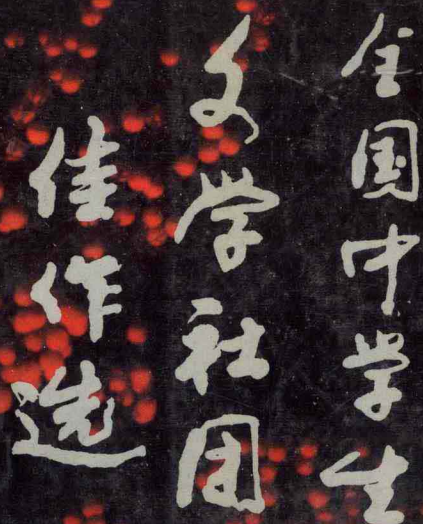 全国中学生
文学社团
佳作选